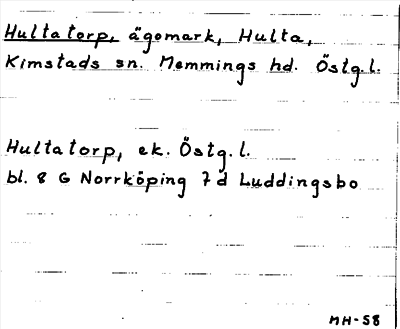 Hultatorp, ägomark, Hulta,
Kimstads sn. Memmings hd. Östg.l.
Hultatorp, ek. Östg.l.
bl. 8 G Norrköping 7d Luddingsbo
MH-58